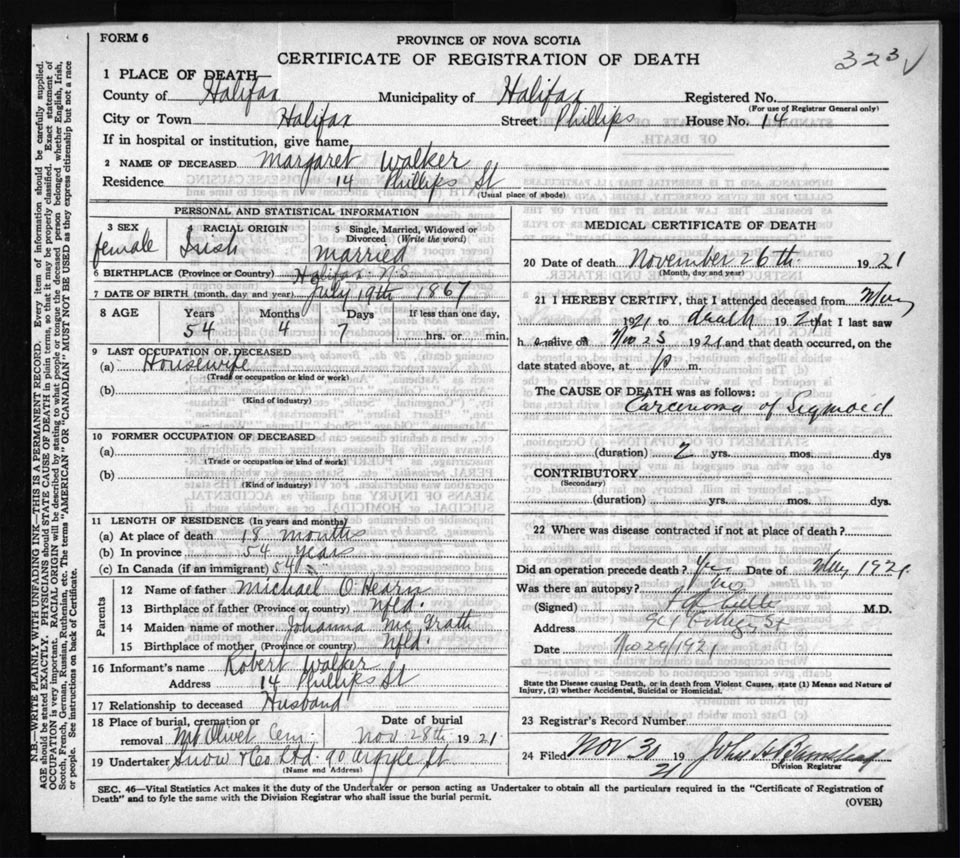 FORM 6
PROVINCE OF NOVA SCOTIA
323 √
CERTIFICATE OF REGISTRATION OF DEATH
1 PLACE OF DEATH—
County of Halifax Municipality of Halifax Registered No.
(For use of Registrar General only)
City or Town Halifax Street Phillips House No. 14
If in hospital or institution, give name
2 NAME OF DECEASED Margaret Walker
Residence 14 Phillips St
(Usual place of abode)
PERSONAL AND STATISTICAL INFORMATION
3 SEX 4 RACIAL ORIGIN 5 Single, Married, Widowed or Divorced (Write the word)
female Irish married
6 BIRTHPLACE (Province or Country) Halifax N.S
7 DATE OF BIRTH (month, day and year) July 19th 1867
8 AGE Years Months Days If less than one day,
54 4 7 hrs. or min.
9 LAST OCCUPATION OF DECEASED
(a) Housewife
(Trade or occupation or kind or work)
(b)
(Kind of industry)
10 FORMER OCCUPATION OF DECEASED
(a)
(Trade or occupation or kind of work)
(b)
(Kind of industry)
11 LENGTH OF RESIDENCE (In years and months)
(a) At place of death 18 months
(b) In province 54 years
(c) In Canada (if an immigrant) 54 "
Parents
12 Name of father Michael O'Hearn
13 Birthplace of father (Province or country) Nfld.
14 Maiden name of mother Johanna McGrath
15 Birthplace of mother (Province or country) Nfld.
16 Informant's name Robert Walker
Address 14 Phillips St
17 Relationship to deceased Husband
18 Place of burial, cremation or removal Mt Olivet Cem. Date of burial Nov. 28th 1921
19 Undertaker Snow & Co Ltd 90 Argyle St
(Name and Address)
MEDICAL CERTIFICATE OF DEATH
20 Date of death November 26th 1921
(Month, day and year)
21 I HEREBY CERTIFY, that I attended deceased from May
1921 to death 1921 that I last saw
h alive on Nov 25 1921 and that death occurred, on the
date stated above, at p m.
The CAUSE OF DEATH was as follows:
Carcenoma of Sigmoid
(duration) 2 yrs. mos. dys
CONTRIBUTORY
(Secondary)
(duration) yrs. mos. dys.
22 Where was disease contracted if not at place of death?
Did an operation precede death? Yes Date of May 1921
Was there an autopsy?
(Signed) M.D.
Address St
Date Nov 29/1921
State the Disease causing Death, or in death from Violent Causes, state (1) Means and Nature of
Injury, (2) whether Accidental, Suicidal or Homicidal.
23 Registrar's Record Number
24 Filed Nov 30 1921 John H Barnstead
Division Registrar
SEC. 46—Vital Statistics Act makes it the duty of the Undertaker or person acting as Undertaker to obtain all the particulars required in the "Certificate of Registration of
Death" and to fyle the same with the Division Registrar who shall issue the burial permit.
(OVER)
N.B.—WRITE PLAINLY WITH UNFADING INK—THIS IS A PERMANENT RECORD. Every item of information should be carefully supplied.
AGE should be stated EXACTLY. PHYSICIANS should STATE CAUSE OF DEATH in plain terms, so that it may be properly classified. Exact statement of
OCCUPATION is very important. RACIAL ORIGIN will be described by stating to what people or tongue the deceased person belonged whether English, Irish,
Scotch, French, German, Russian, Ruthenian, etc. The terms "AMERICAN" OR "CANADIAN" MUST NOT BE USED as they express citizenship but not a race
or people. See instructions on back of Certificate.